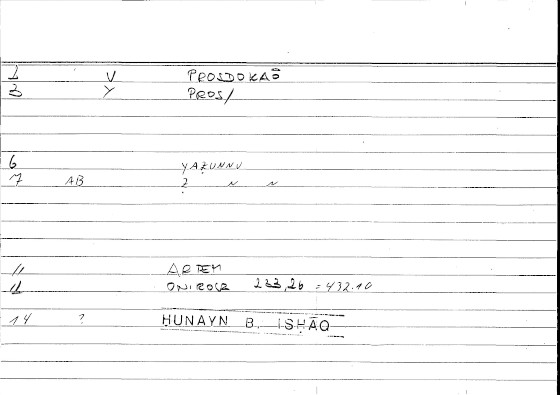 1 V PROSDOKAŌ
3 Y PROS/
6 YAẒUNNU
7 AB ? ~ ~
11 ARTEM
11 ONIROCR 233,26 = 432.10
14 ? ḤUNAYN B. ISḤĀQ